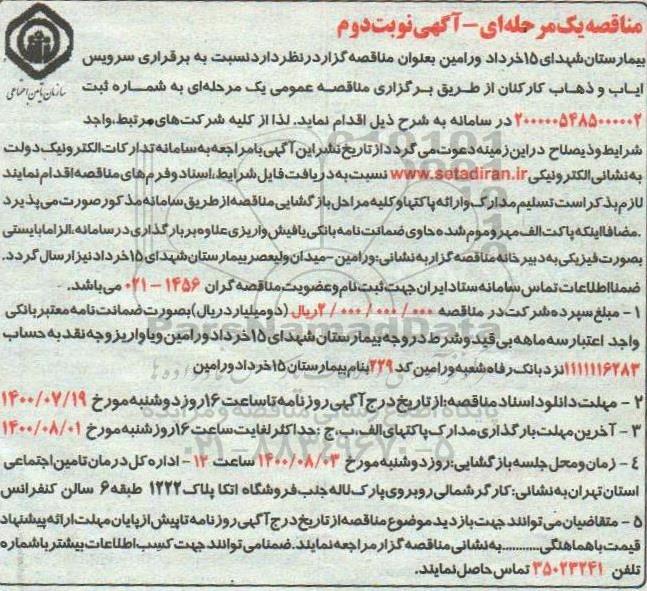 مناقصه یک مرحله‌ای - آگهی نوبت دوم
سازمان تامین اجتماعی
بیمارستان شهدای ۱۵ خرداد ورامین بعنوان مناقصه گزار در نظر دارد نسبت به برقراری سرویس
ایاب و ذهاب کارکنان از طریق برگزاری مناقصه عمومی یک مرحله‌ای به شماره ثبت
۲۰۰۰۰۰۵۴۸۵۰۰۰۰۰۲ در سامانه به شرح ذیل اقدام نماید. لذا از کلیه شرکت های مرتبط، واجد
شرایط و ذیصلاح در این زمینه دعوت می گردد از تاریخ نشر این آگهی با مراجعه به سامانه تدارکات الکترونیک دولت
به نشانی الکترونیکی www.setadiran.ir نسبت به دریافت فایل شرایط، اسناد و فرم های مناقصه اقدام نمایند
لازم بذکر است تسلیم مدارک و ارائه پاکتها و کلیه مراحل بازگشایی مناقصه از طریق سامانه مذکور صورت می پذیرد
.مضافا اینکه پاکت الف مهر و موم شده حاوی ضمانت نامه بانکی یا فیش واریزی علاوه بر بارگذاری در سامانه، الزاما بایستی
بصورت فیزیکی به دبیرخانه مناقصه گزار به نشانی: ورامین - میدان ولیعصر بیمارستان شهدای ۱۵ خرداد نیز ارسال گردد.
ضمنا اطلاعات تماس سامانه ستاد ایران جهت ثبت نام و عضویت مناقصه گران ۱۴۵۶ - ۰۲۱ می باشد.
۱ - مبلغ سپرده شرکت در مناقصه ۲/۰۰۰/۰۰۰/۰۰۰ ریال (دو میلیارد ریال) بصورت ضمانت نامه معتبر بانکی
واجد اعتبار سه ماهه بی قید و شرط در وجه بیمارستان شهدای ۱۵ خرداد ورامین و یا واریز وجه نقد به حساب
۱۱۱۱۱۱۱۶۲۸۳ نزد بانک رفاه شعبه ورامین کد ۲۲۹ بنام بیمارستان ۱۵ خرداد ورامین
۲ - مهلت دانلود اسناد مناقصه: از تاریخ درج آگهی روزنامه تا ساعت ۱۶ روز دوشنبه مورخ ۱۴۰۰/۰۷/۱۹
۳ - آخرین مهلت بارگذاری مدارک پاکتهای الف، ب، ج: حداکثر لغایت ساعت ۱۶ روز شنبه مورخ ۱۴۰۰/۰۸/۰۱
۴ - زمان و محل جلسه بازگشایی: روز دوشنبه مورخ ۱۴۰۰/۰۸/۰۳ ساعت ۱۲ - اداره کل درمان تامین اجتماعی
استان تهران به نشانی: کارگر شمالی روبروی پارک لاله جنب فروشگاه اتکا پلاک ۱۲۲۲ طبقه ۶ سالن کنفرانس
۵ - متقاضیان می توانند جهت بازدید موضوع مناقصه از تاریخ درج آگهی روزنامه تا پیش از پایان مهلت ارائه پیشنهاد
قیمت با هماهنگی ........... به نشانی مناقصه گزار مراجعه نمایند. ضمنا می توانند جهت کسب اطلاعات بیشتر با شماره
تلفن ۳۵۰۲۳۲۴۱ تماس حاصل نمایند.